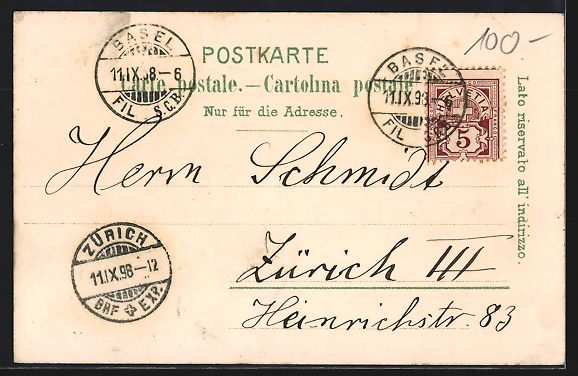 100-
BASEL
11.IX.98-6
FIL. S.C.B.
POSTKARTE
Carte postale. — Cartolina postale
Nur für die Adresse.
BASEL
11.IX.98-6
FIL. S.C.B.
HELVETIA
5
Lato riservato all' indirizzo.
Herrn Schmidt
ZÜRICH
11.IX.98-12
BRF EXP.
Zürich III
Heinrichstr. 83